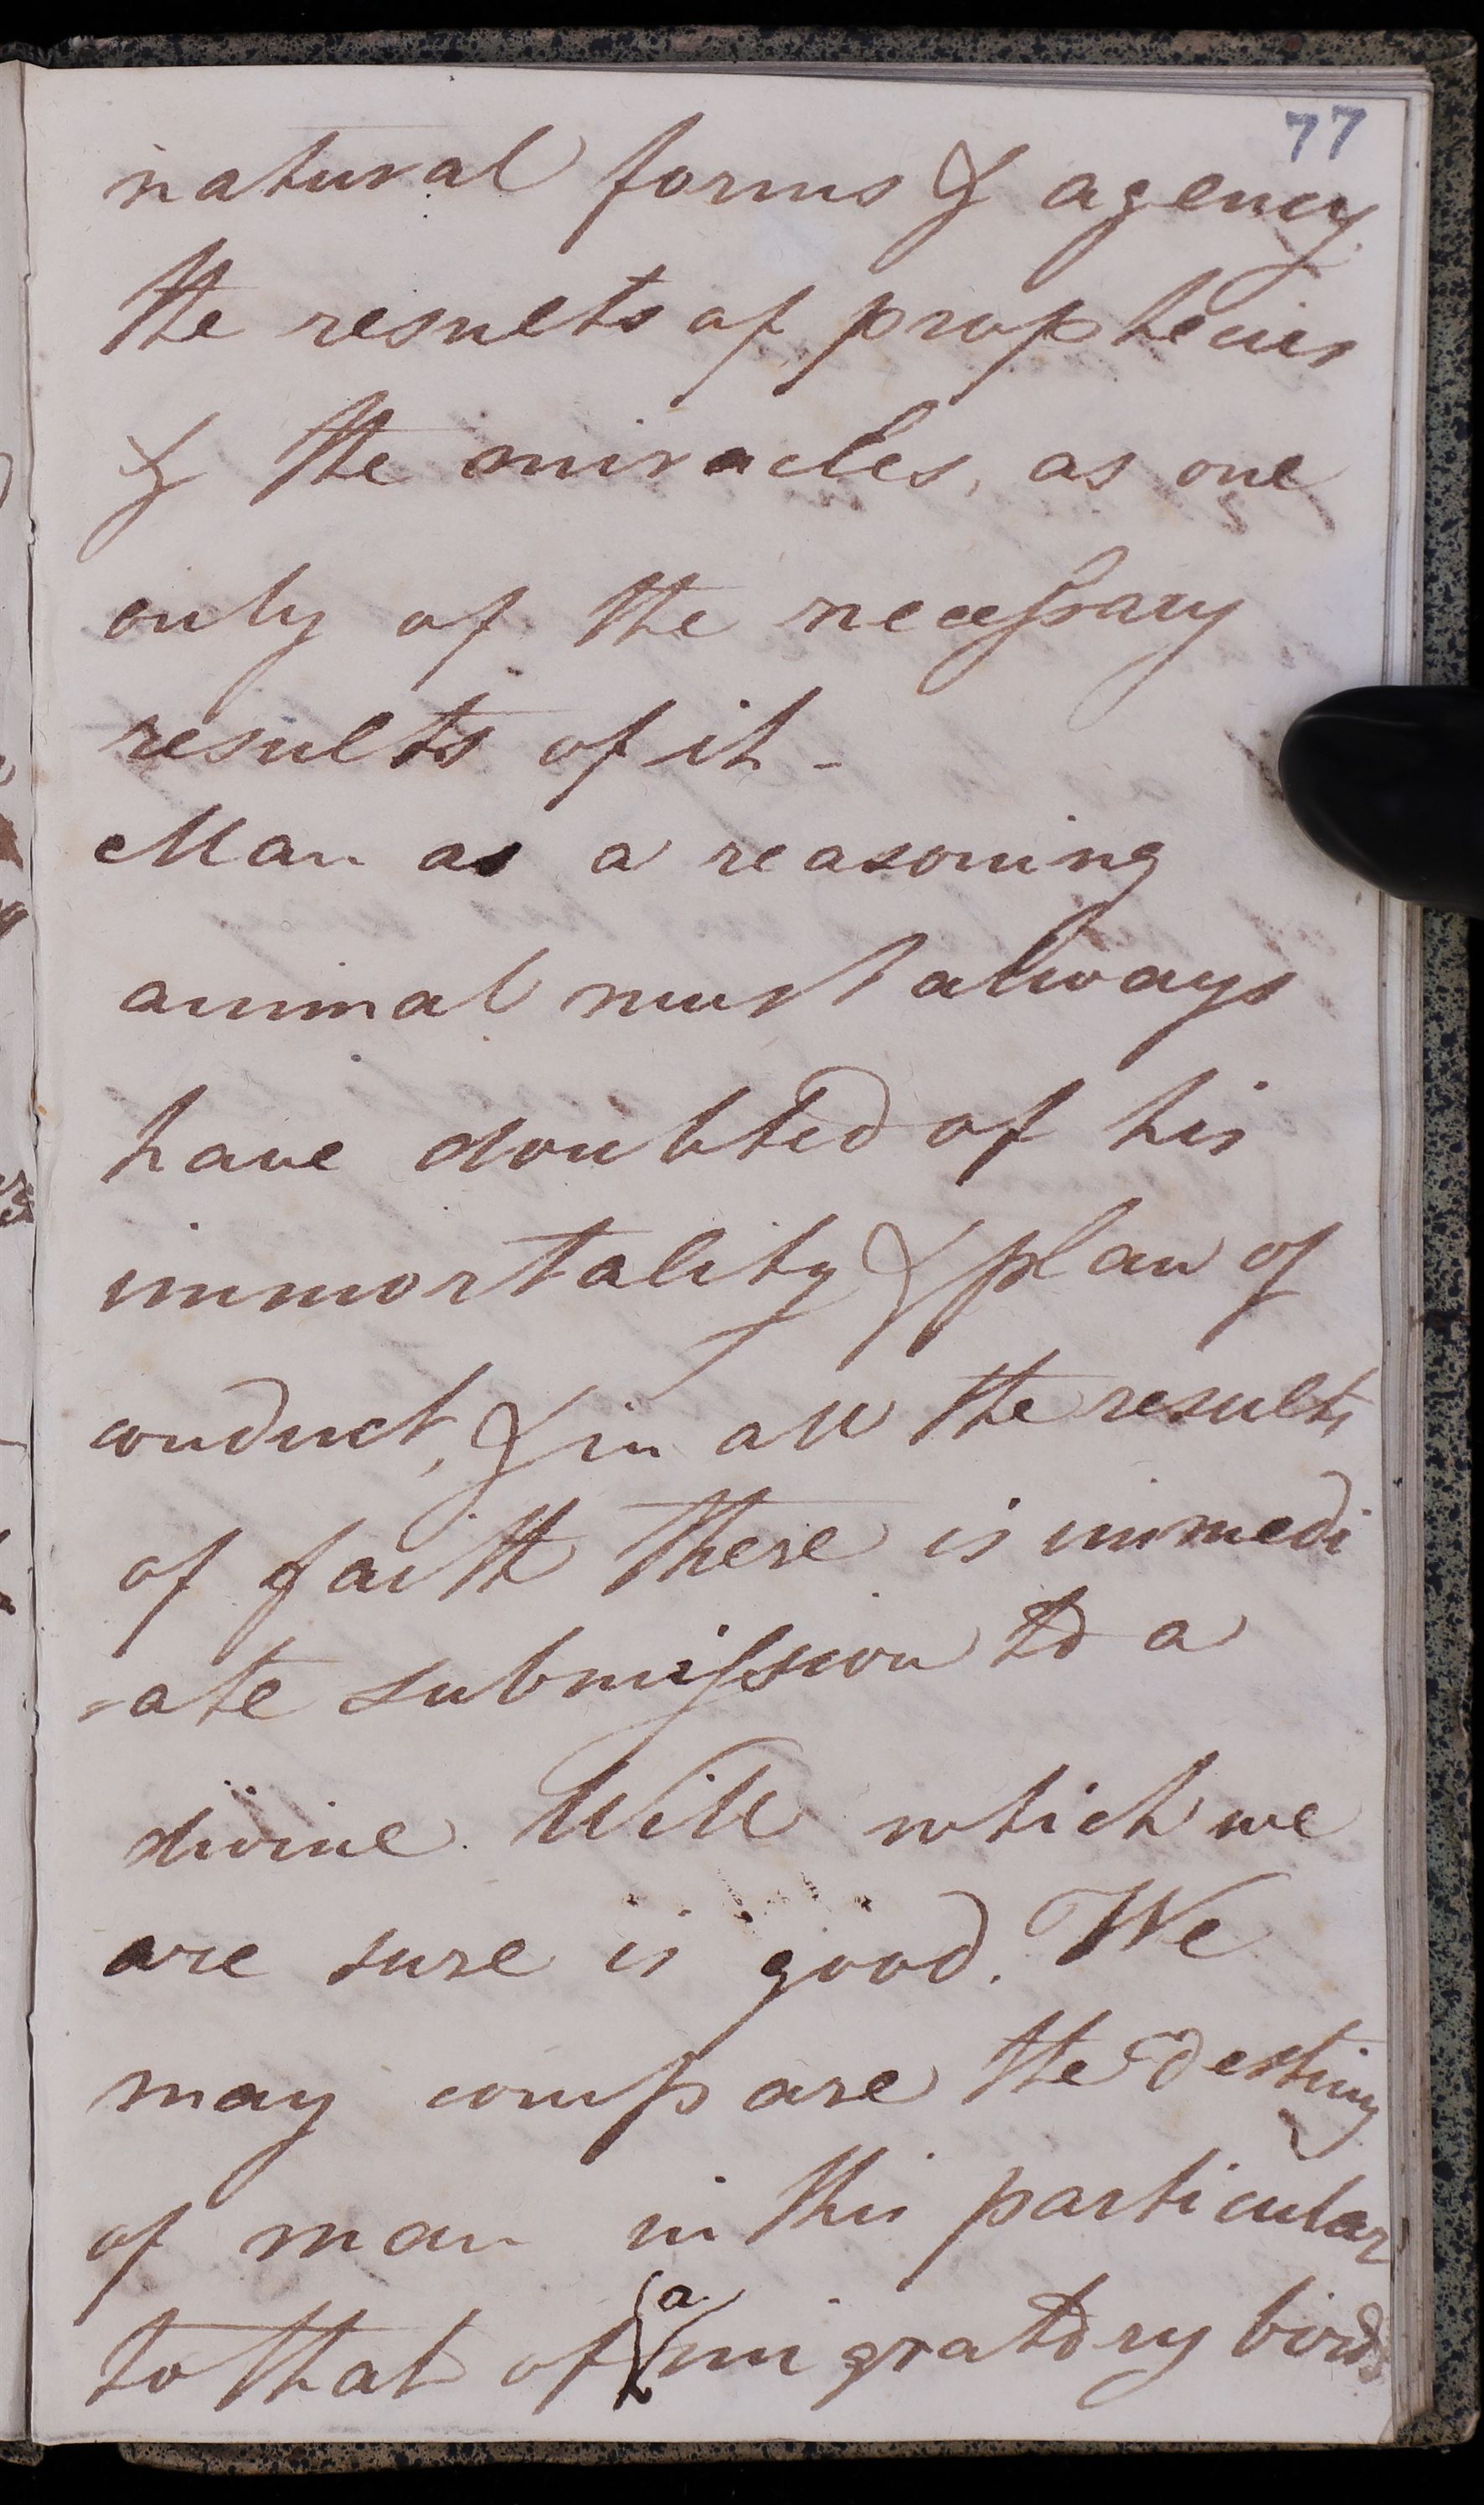 77
natural forms & agency
the results of prophecies
& the miracles, as one
only of the necessary
results of it -
Man as a reasoning
animal must always
have doubted of his
immortality & plan of
conduct, & in all the results
of faith there is immedi
-ate submission to a
divine Will which we
are sure is good. We
may compare the destiny
of man in this particular
a
to that of migratory birds